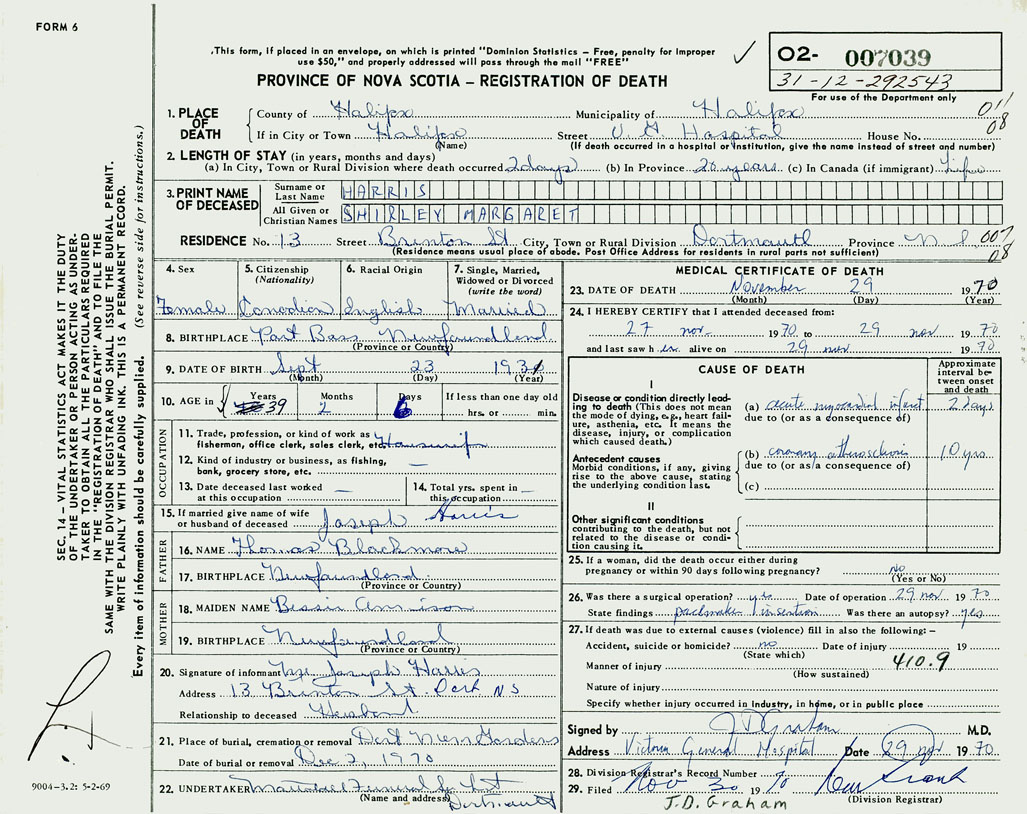 FORM 6
This form, if placed in an envelope, on which is printed "Dominion Statistics – Free, penalty for improper
use $50," and properly addressed will pass through the mail "FREE"
PROVINCE OF NOVA SCOTIA – REGISTRATION OF DEATH
02- 007039
31-12-292543
For use of the Department only
1. PLACE OF DEATH
County of Halifax Municipality of Halifax 011
If in City or Town Halifax Street V G Hospital House No. 08
(Name) (If death occurred in a hospital or institution, give the name instead of street and number)
2. LENGTH OF STAY (in years, months and days)
(a) In City, Town or Rural Division where death occurred 2 days (b) In Province 20 years (c) In Canada (if immigrant) Life
3. PRINT NAME OF DECEASED
Surname or Last Name HARRIS
All Given or Christian Names SHIRLEY MARGARET
RESIDENCE No. 13 Street Brinton St City, Town or Rural Division Dartmouth Province N S 007
08
(Residence means usual place of abode. Post Office Address for residents in rural parts not sufficient)
4. Sex
Female
5. Citizenship (Nationality)
Canadian
6. Racial Origin
English
7. Single, Married, Widowed or Divorced (write the word)
Married
8. BIRTHPLACE Port Bass Newfoundland
(Province or Country)
9. DATE OF BIRTH Sept 23 1931
(Month) (Day) (Year)
10. AGE in Years 39 Months 2 Days 6 If less than one day old
hrs. or min.
OCCUPATION
11. Trade, profession, or kind of work as
fisherman, office clerk, sales clerk, etc. Housewife
12. Kind of industry or business, as fishing,
bank, grocery store, etc. —
13. Date deceased last worked
at this occupation —
14. Total yrs. spent in
this occupation —
15. If married give name of wife
or husband of deceased Joseph Harris
FATHER
16. NAME Thomas Blackmore
17. BIRTHPLACE Newfoundland
(Province or Country)
MOTHER
18. MAIDEN NAME Bessie
19. BIRTHPLACE Newfoundland
(Province or Country)
20. Signature of informant Joseph Harris
Address 13 Brinton St. Dart NS
Relationship to deceased Husband
21. Place of burial, cremation or removal Dart Mem Gardens
Date of burial or removal Dec 2, 1970
22. UNDERTAKER Funeral
(Name and address) Dartmouth
MEDICAL CERTIFICATE OF DEATH
23. DATE OF DEATH November 29 1970
(Month) (Day) (Year)
24. I HEREBY CERTIFY that I attended deceased from:
27 nov 1970 to 29 nov 1970
and last saw her alive on 29 nov 1970
CAUSE OF DEATH
Approximate interval between onset and death
I
Disease or condition directly leading to death (This does not mean the mode of dying, e.g., heart failure, asthenia, etc. It means the disease, injury, or complication which caused death.)
(a) acute myocardial infarct 2 days
due to (or as a consequence of)
Antecedent causes
Morbid conditions, if any, giving rise to the above cause, stating the underlying condition last.
(b) coronary atherosclerosis 10 yrs
due to (or as a consequence of)
(c)
II
Other significant conditions contributing to the death, but not related to the disease or condition causing it.
25. If a woman, did the death occur either during
pregnancy or within 90 days following pregnancy? no
(Yes or No)
26. Was there a surgical operation? yes Date of operation 29 nov 1970
State findings pacemaker insertion Was there an autopsy? yes
27. If death was due to external causes (violence) fill in also the following: –
Accident, suicide or homicide? no Date of injury 19
(State which)
Manner of injury 410.9
(How sustained)
Nature of injury
Specify whether injury occurred in industry, in home, or in public place
Signed by J D Graham M.D.
Address Victoria General Hospital Date 29 nov 1970
28. Division Registrar's Record Number
29. Filed Nov 30 1970
(Division Registrar)
J.D. Graham
SEC. 14 – VITAL STATISTICS ACT MAKES IT THE DUTY
OF THE UNDERTAKER OR PERSON ACTING AS UNDER-
TAKER TO OBTAIN ALL THE PARTICULARS REQUIRED
IN THE "REGISTRATION OF DEATH" AND TO FILE THE
SAME WITH THE DIVISION REGISTRAR WHO SHALL ISSUE THE BURIAL PERMIT.
WRITE PLAINLY WITH UNFADING INK. THIS IS A PERMANENT RECORD.
Every item of information should be carefully supplied. (See reverse side for instructions.)
9004–3.2: 5-2-69